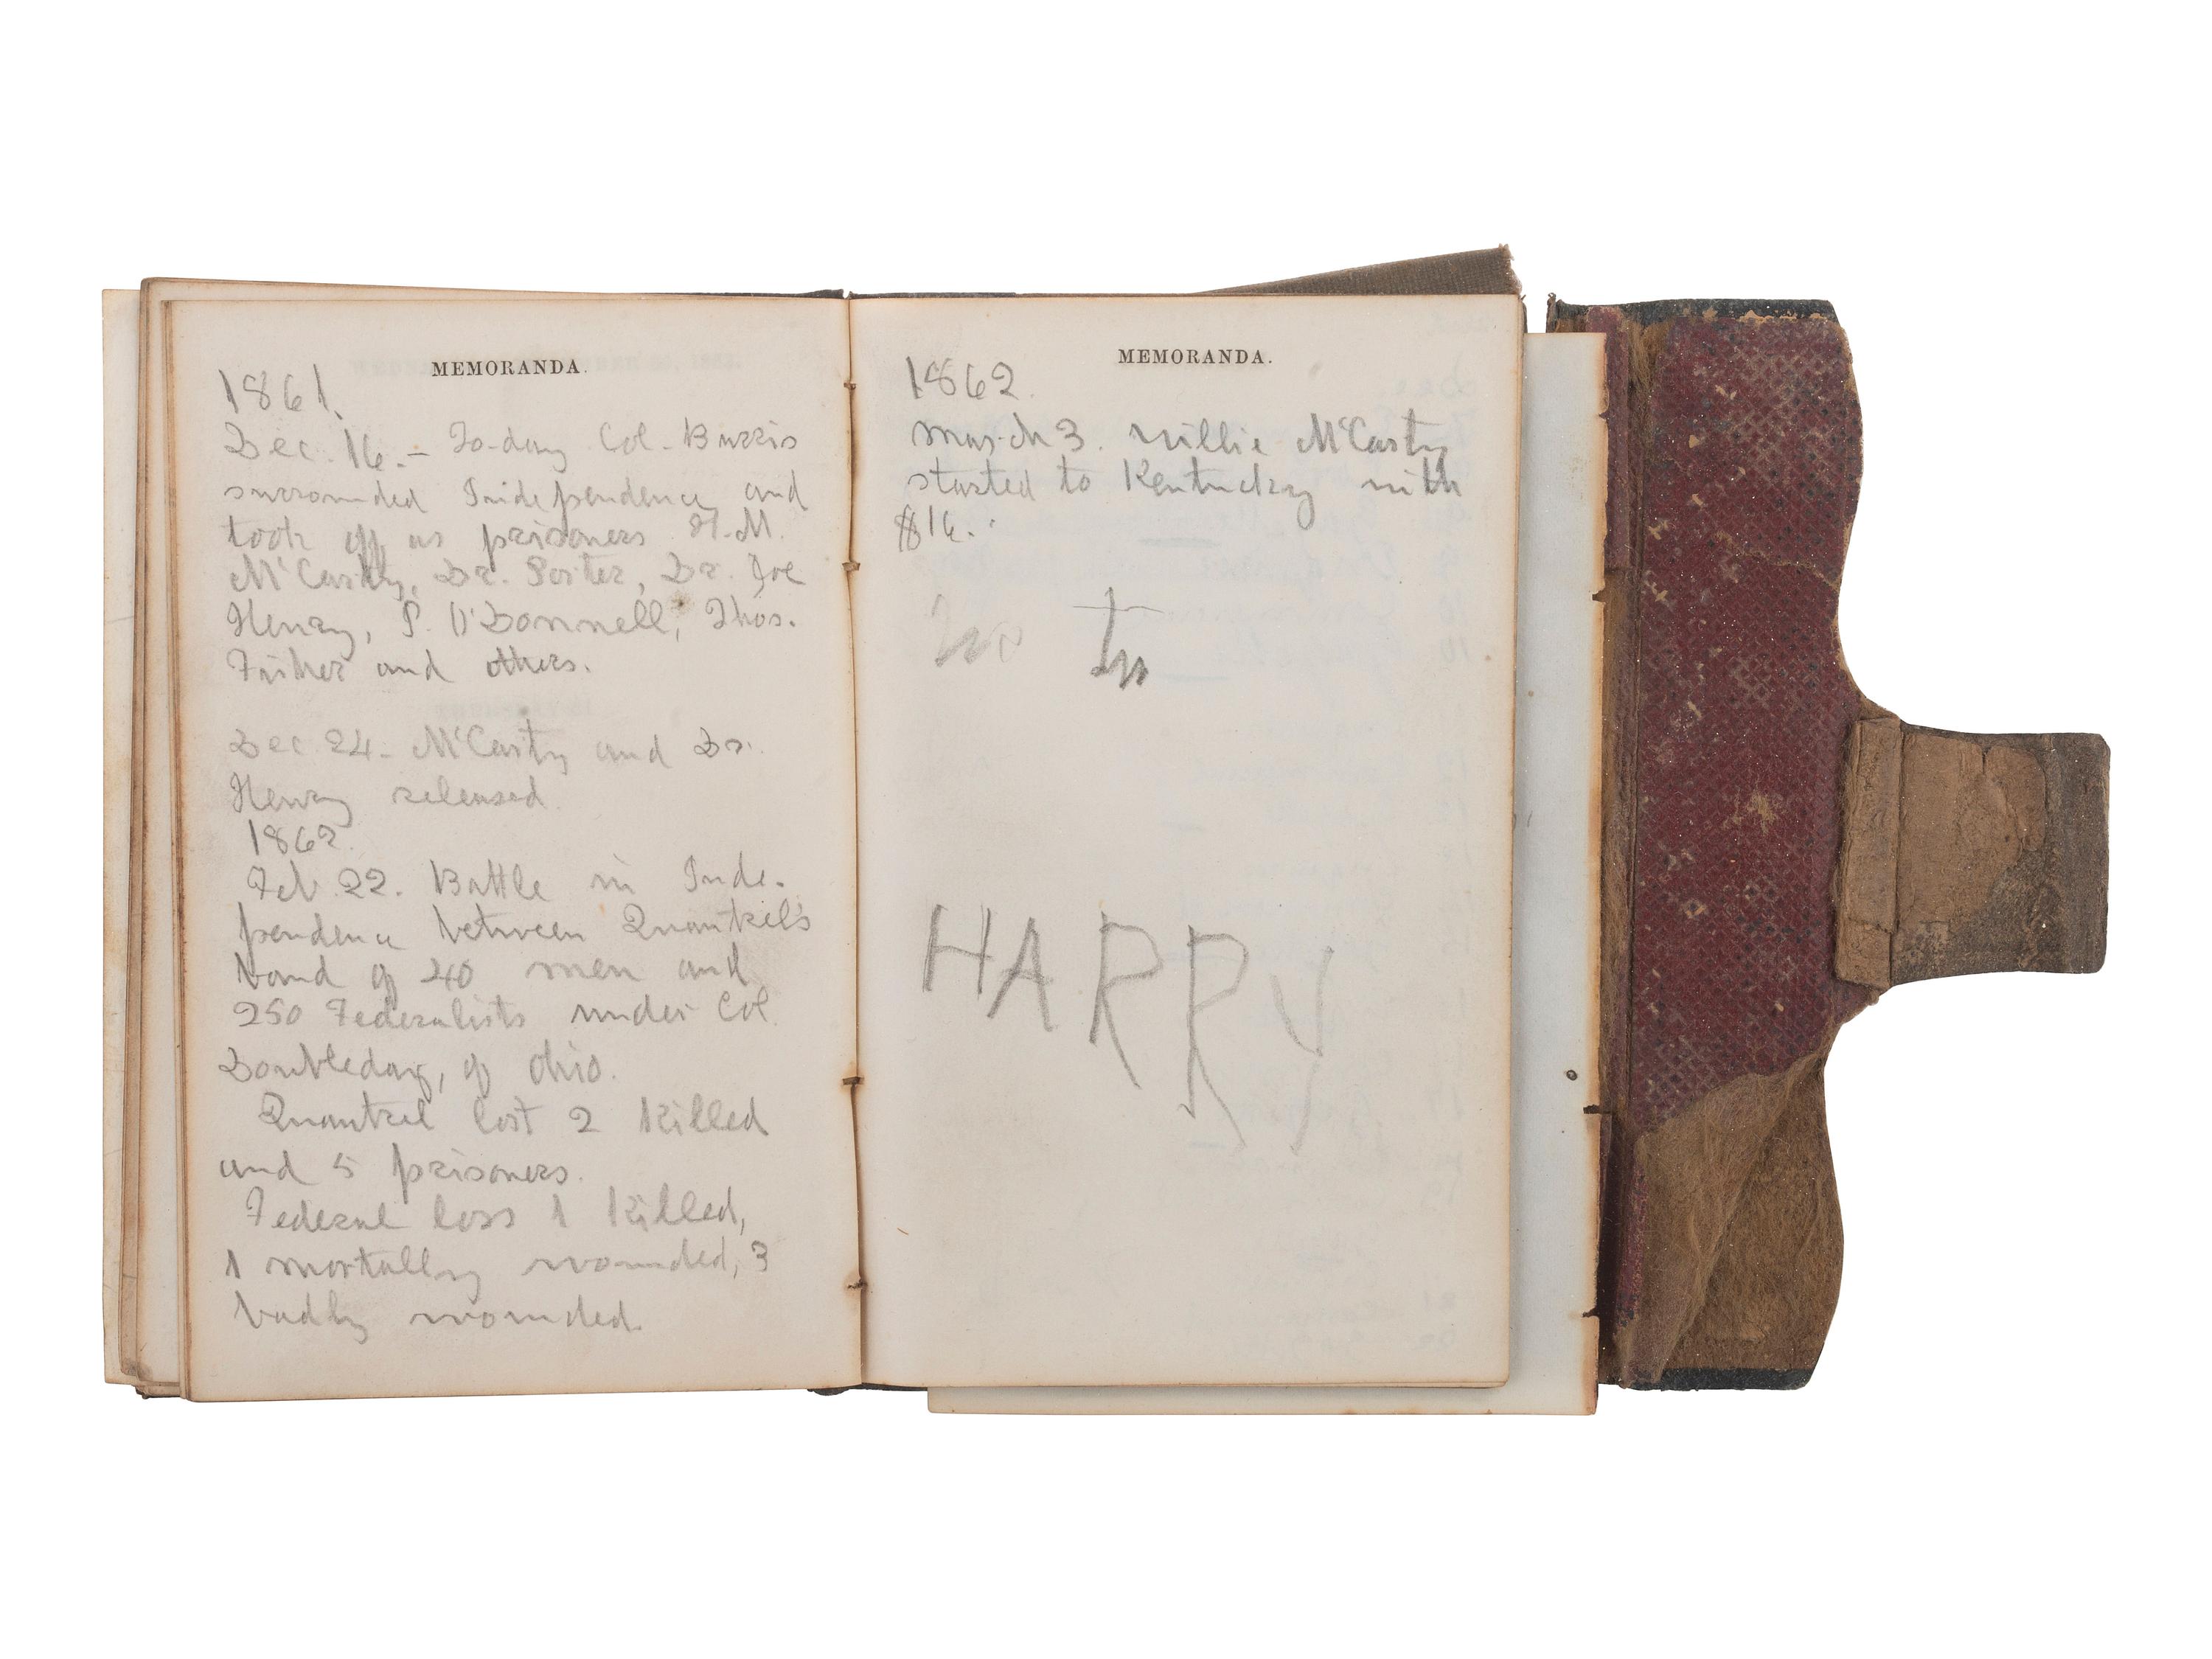 MEMORANDA.
1861.
Dec. 16. - To-day Col. Burris
surrounded Independence and
took off as prisoners H. M.
McCarty, Dr. Porter, Dr. Joe
Henry, P. O'Donnell, Thos.
Fisher and others.
Dec 24 - McCarty and Dr.
Henry released.
1862.
Feb 22. Battle in Inde-
pendence between Quantrel's
band of 40 men and
250 Federalists under Col.
Doubleday, of Ohio.
Quantrel lost 2 killed
and 5 prisoners.
Federal loss 1 killed,
1 mortally wounded, 3
badly wounded.
MEMORANDA.
1862.
March 3. Willie McCarty
started to Kentucky with
$16.
HARRY